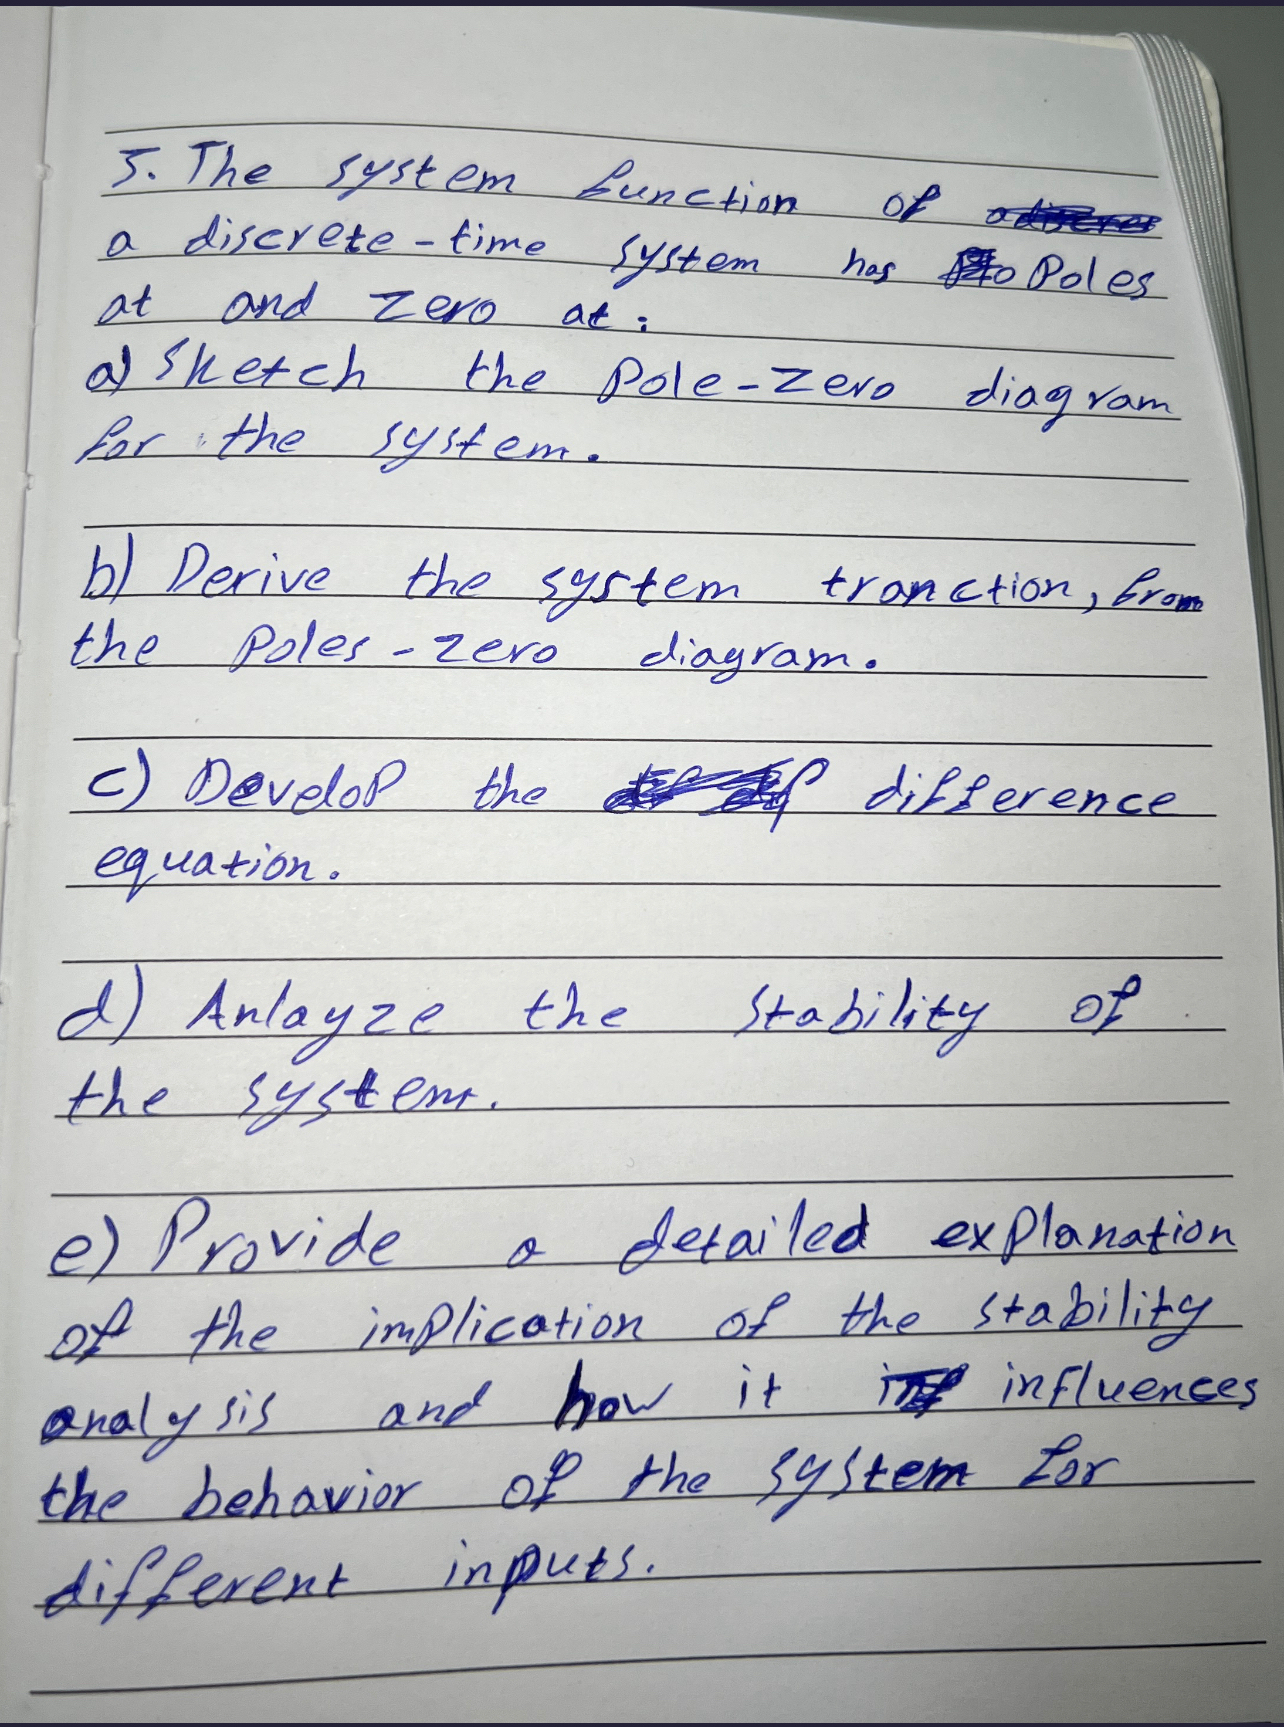 5. The system function of
a discrete-time system has Poles
at and zero at:
a) Sketch the Pole-Zero diagram
for the system.
b) Derive the system tranction, from
the Poles-zero diagram.
c) Develop the difference
equation.
d) Anlayze the stability of
the system.
e) Provide a detailed explanation
of the implication of the stability
analysis and how it influences
the behavior of the system for
different inputs.